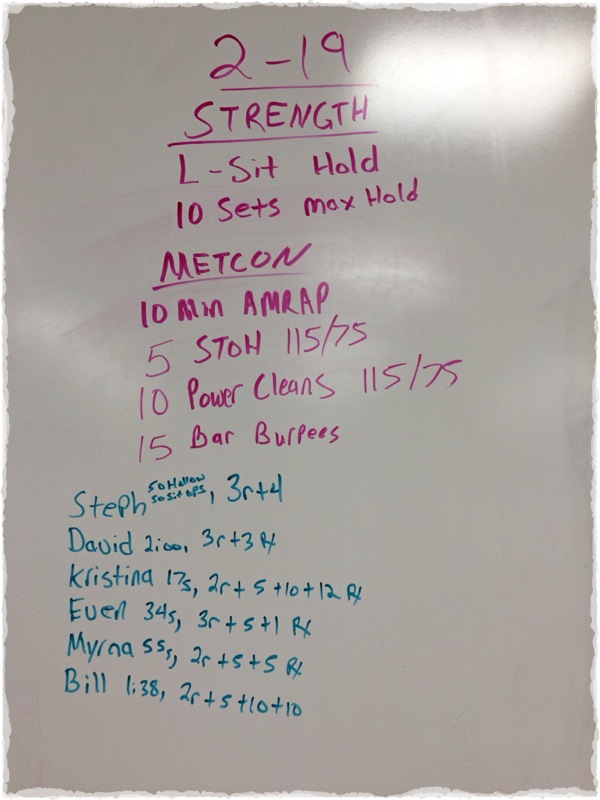 2-19
STRENGTH
L-Sit Hold
10 Sets max Hold
METCON
10 Min AMRAP
5 STOH 115/75
10 Power Cleans 115/75
15 Bar Burpees
Steph 50 Hollow 50 Sit ups, 3r+4
David 2:00, 3r+3 Rx
Kristina 17s, 2r+5+10+12 Rx
Even 34s, 3r+5+1 Rx
Myrna 55s, 2r+5+5 Rx
Bill 1:38, 2r+5+10+10